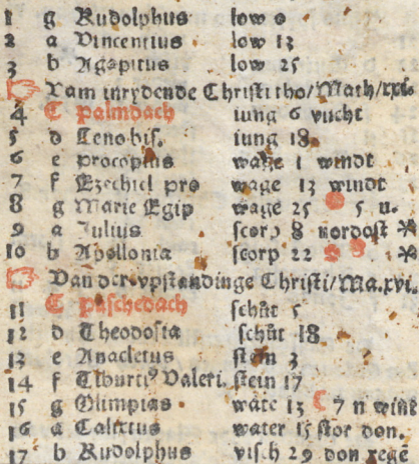 1 g Rudolphus low 0
2 a Vincentius low 13
3 b Agapitus low 25
☞ Vam inrydende Christi tho/Math/xxi.
4 C palmdach iung 6 vucht
5 d Zenobis. iung 18
6 e procopius wage 1 windt
7 f Ezechiel pro wage 13 windt
8 g Marie Egip wage 25 5 n.
9 a Julius scorp 8 nordost
10 b Apollonia scorp 22
☞ Van der vpstandinge Christi/Ma.xvi.
11 C paschedach schüt 5
12 d Theodosia schüt 18
13 e Anacletus stein 3
14 f Tiburti9 Valeri. stein 17
15 g Olimpias water 13 ☾ 7 n wint
16 a Calixtus water 15 stor don.
17 b Rudolphus visch 29 don rege